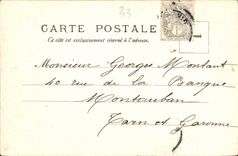 33
CARTE POSTALE
Ce côté est exclusivement réservé à l'adresse.
Monsieur Georges Montaut
40 rue de la Banque
Montauban
Tarn et Garonne